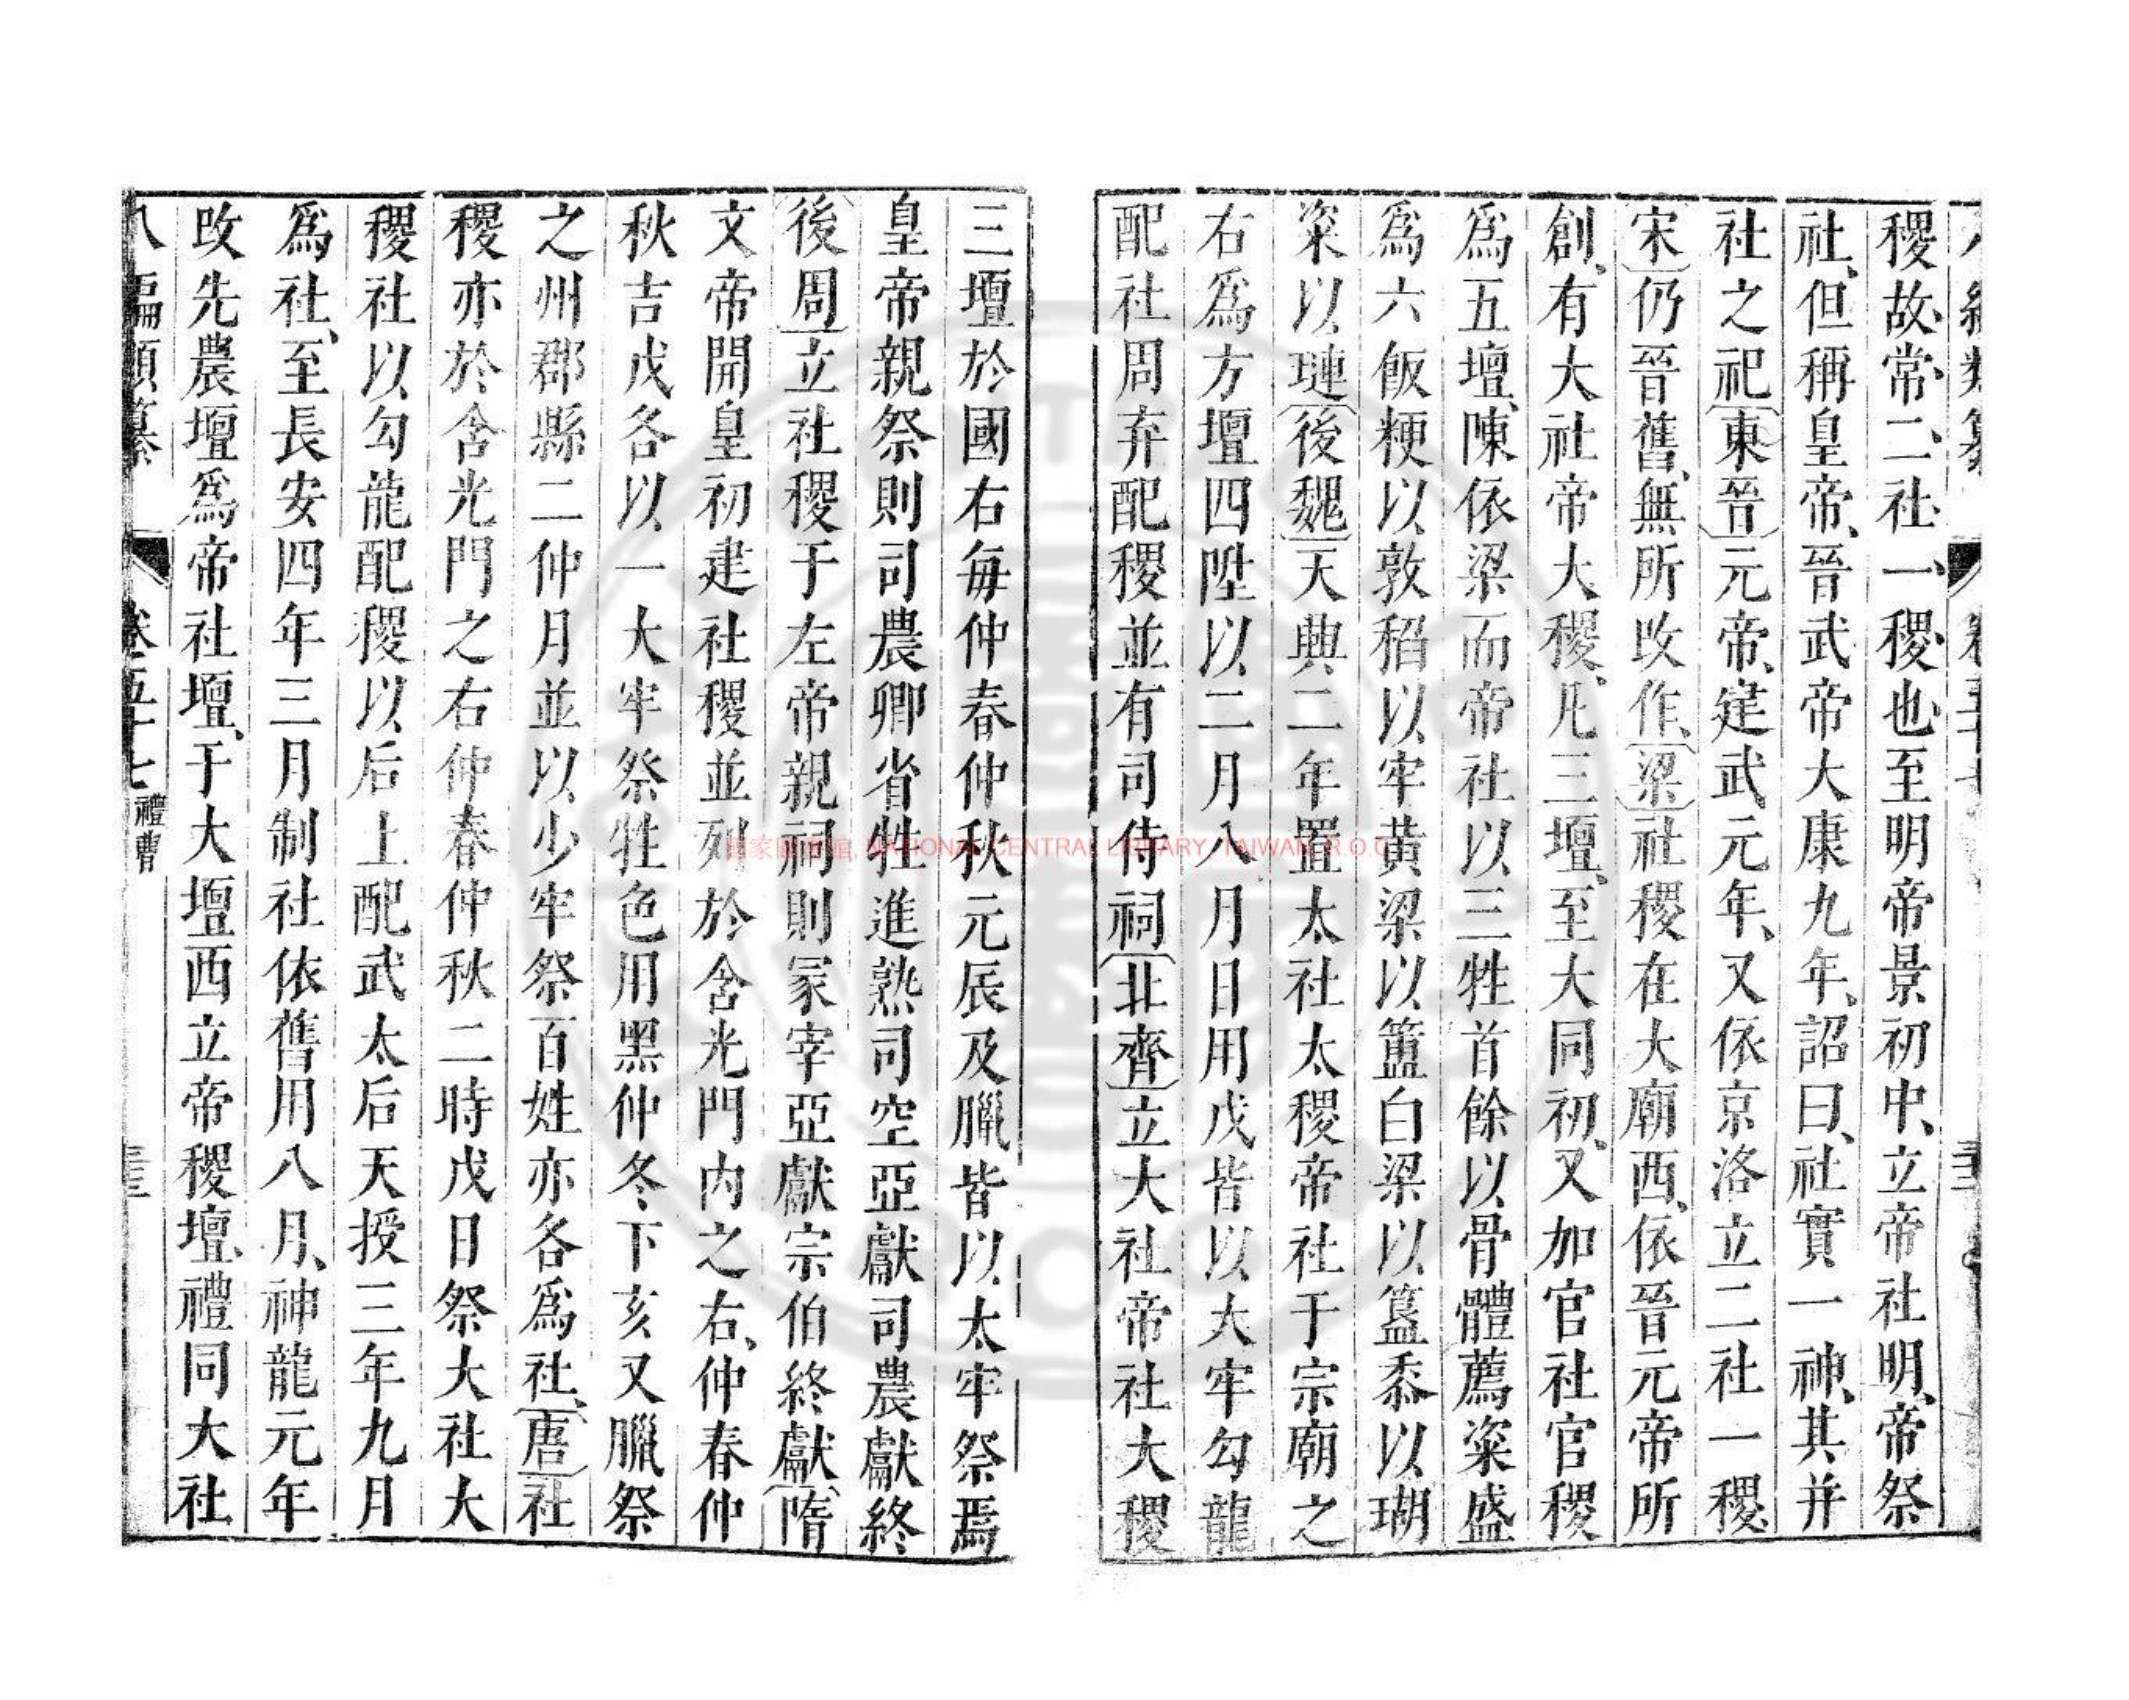 稷故常二社一稷也至明帝景初中立帝社明帝祭
社但稱皇帝晉武帝大康九年詔曰社實一神其并
社之祀東晉元帝建武元年又依京洛立二社一稷
宋仍晉舊無所改作梁社稷在大廟西依晉元帝所
創有大社帝大稷凡三壇至大同初又加官社官稷
爲五壇陳依梁而帝社以三牲首餘以骨體薦粢盛
爲六飯粳以敦稻以牢黃粱以簠白粱以簋黍以瑚
粢以璉後魏天典二年置太社太稷帝社于宗廟之
右爲方壇四陛以二月八月日用戊皆以大牢勾龍
配社周弃配稷並有司侍祠北齊立大社帝社大稷
三壇於國右毎仲春仲秋元辰及臘皆以太牢祭焉
皇帝親祭則司農卿省牲進熟司空亞獻司農獻終
後周立社稷于左帝親祠則冡宰亞獻宗伯終獻隋
文帝開皇初建社稷並列於含光門内之右仲春仲
秋吉戊各以一大牢祭牲色用黑仲冬下亥又臘祭
之州郡縣二仲月並以少牢祭百姓亦各爲社唐社
稷亦於含光門之右仲春仲秋二時戊日祭大社大
稷社以勾龍配稷以后土配武太后天授三年九月
爲社至長安四年三月制社依舊用八月神龍元年
改先農壇爲帝社壇于大壇西立帝稷壇禮同大社
八編類纂 卷五十七 禮曹
國家圖書館, NATIONAL CENTRAL LIBRARY, TAIWAN, R.O.C